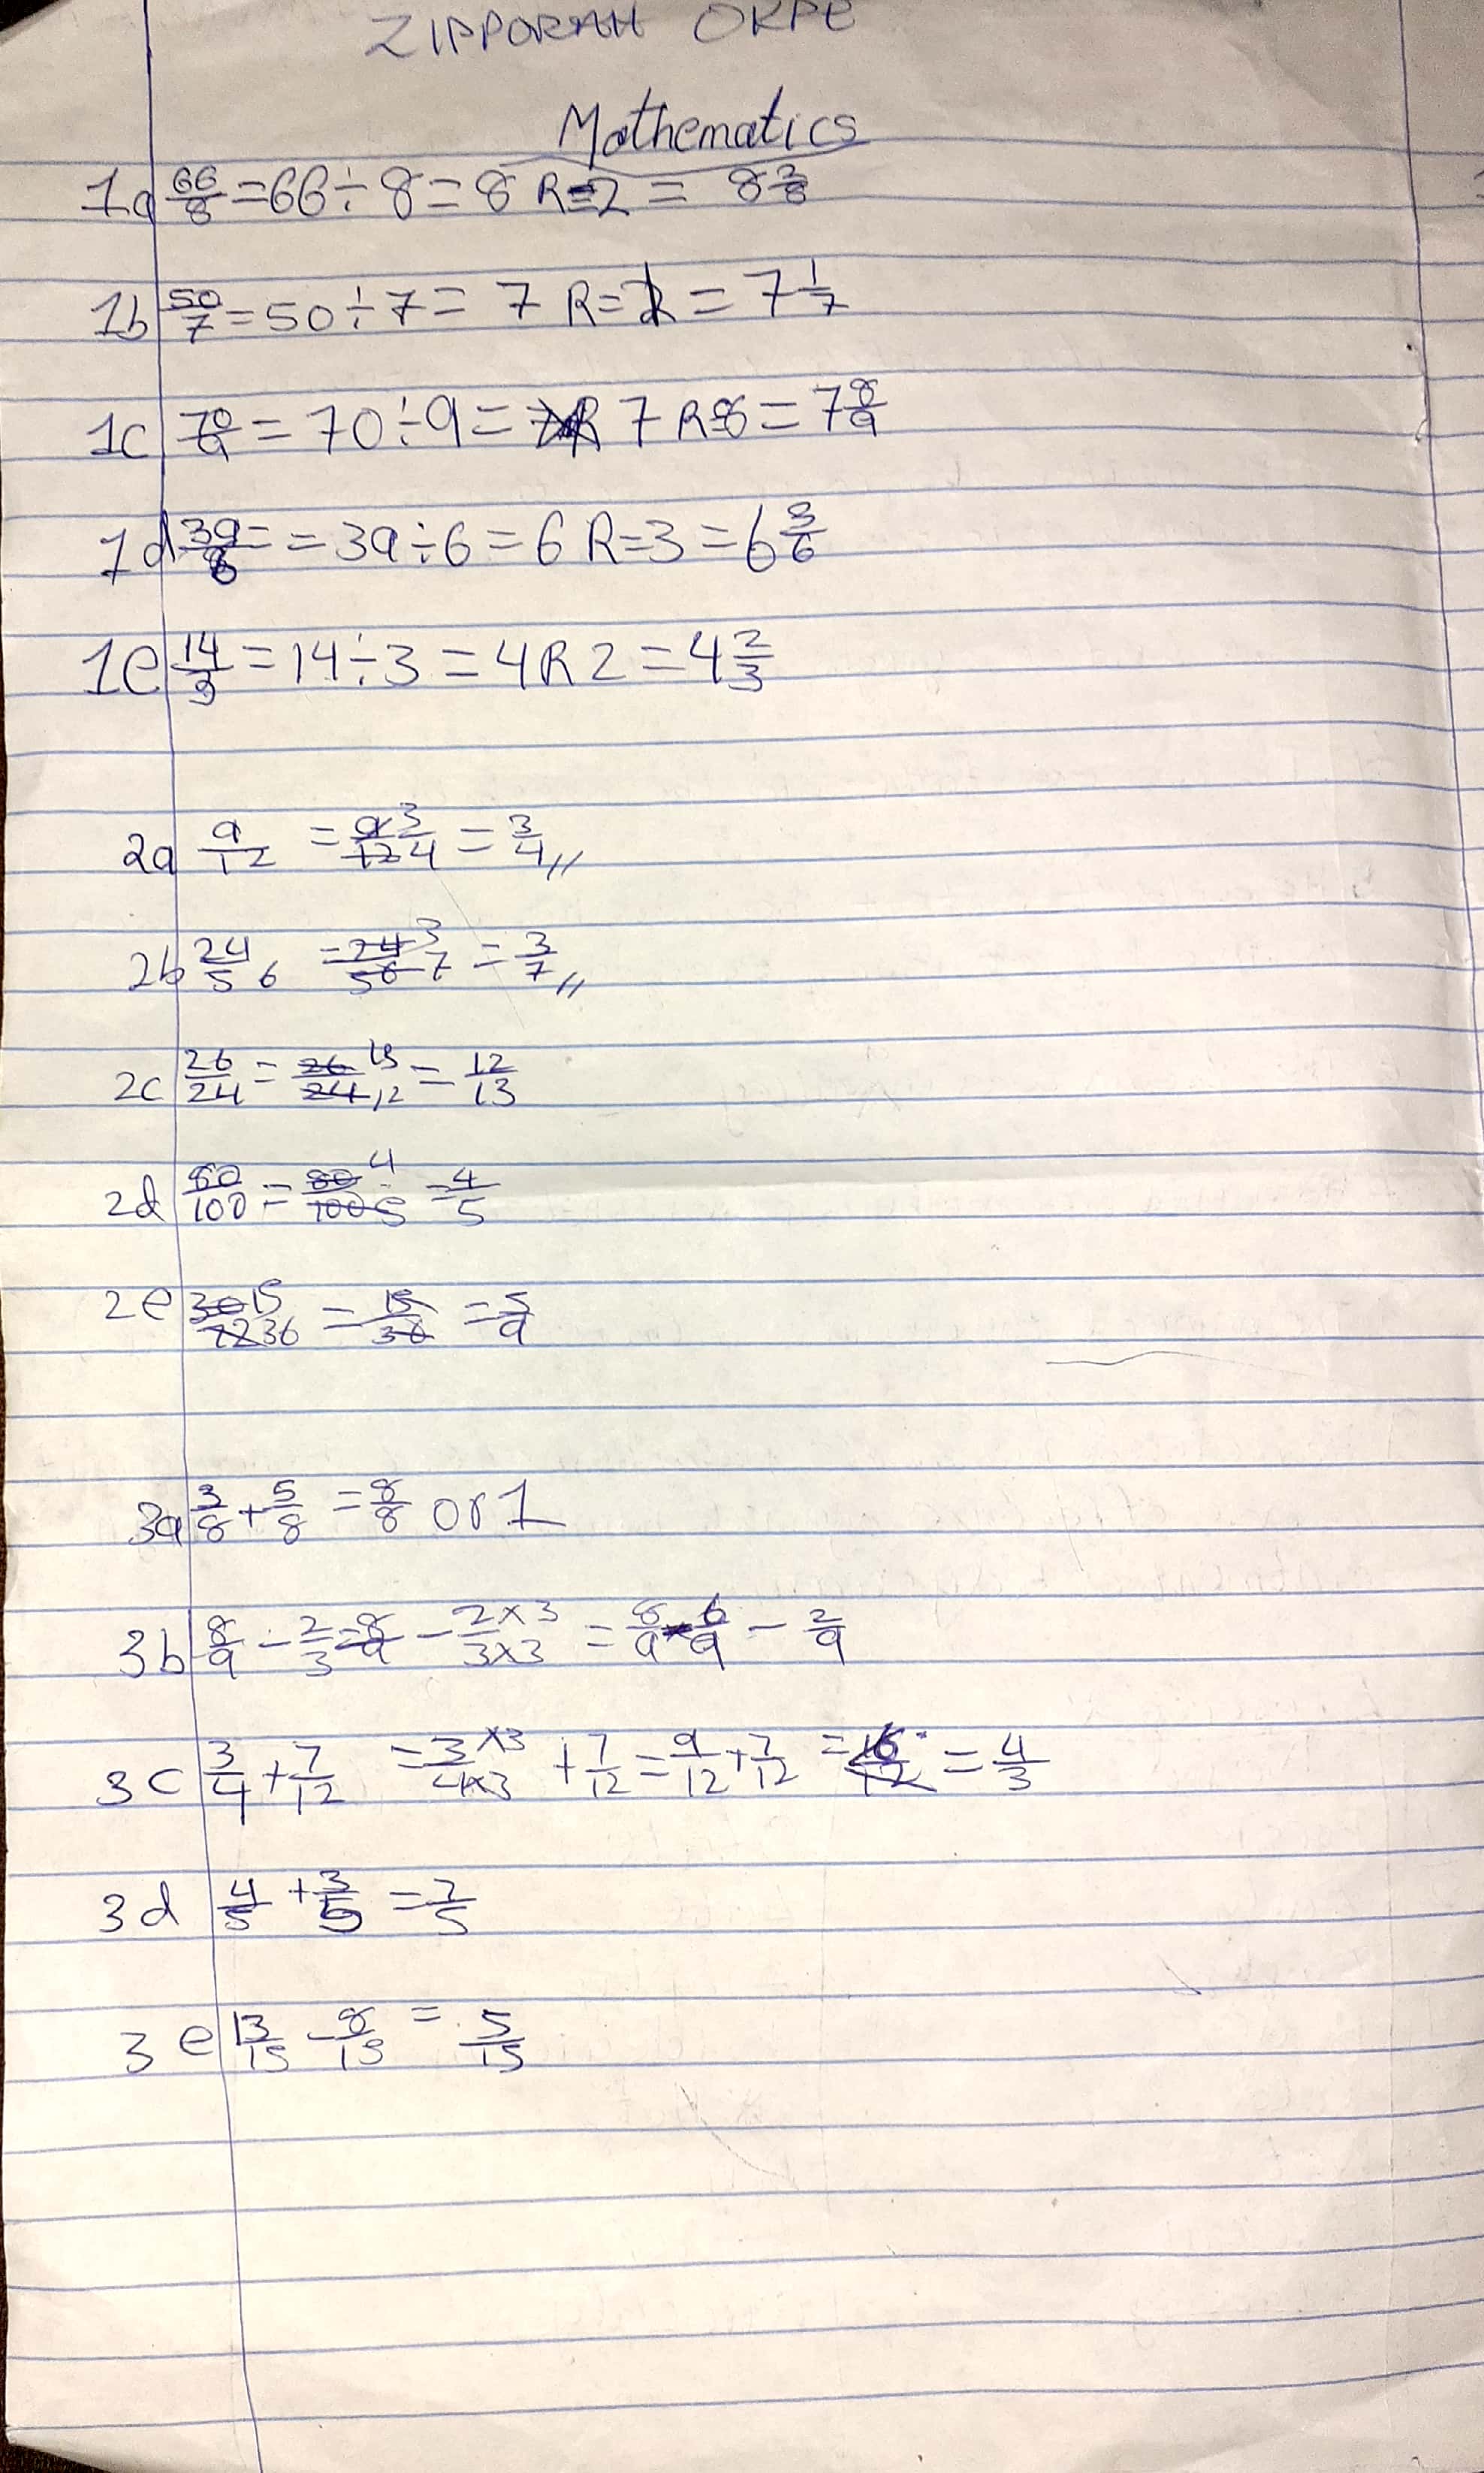 ZIPPORAH OKPE
Mathematics
1a 66/8 = 66 ÷ 8 = 8 R=2 = 8 2/8
1b 50/7 = 50 ÷ 7 = 7 R=1 = 7 1/7
1c 70/9 = 70 ÷ 9 = 7 R=8 = 7 8/9
1d 39/6 = = 39 ÷ 6 = 6 R=3 = 6 3/6
1e 14/3 = 14 ÷ 3 = 4 R 2 = 4 2/3
2a 9/12 = 9 3/12 4 = 3/4 //
2b 24/56 = 24 3/56 7 = 3/7 //
2c 26/24 = 26 13/24 12 = 12/13
2d 80/100 = 80 4/100 5 = 4/5
2e 30 15/72 36 = 15/36 = 5/9
3a 3/8 + 5/8 = 8/8 or 1
3b 8/9 - 2/3 = 8/9 - 2×3/3×3 = 8/9 - 6/9 - 2/9
3c 3/4 + 7/12 = 3×3/4×3 + 7/12 = 9/12 + 7/12 = 16/12 = 4/3
3d 4/5 + 3/5 = 7/5
3e 13/15 - 8/15 = 5/15